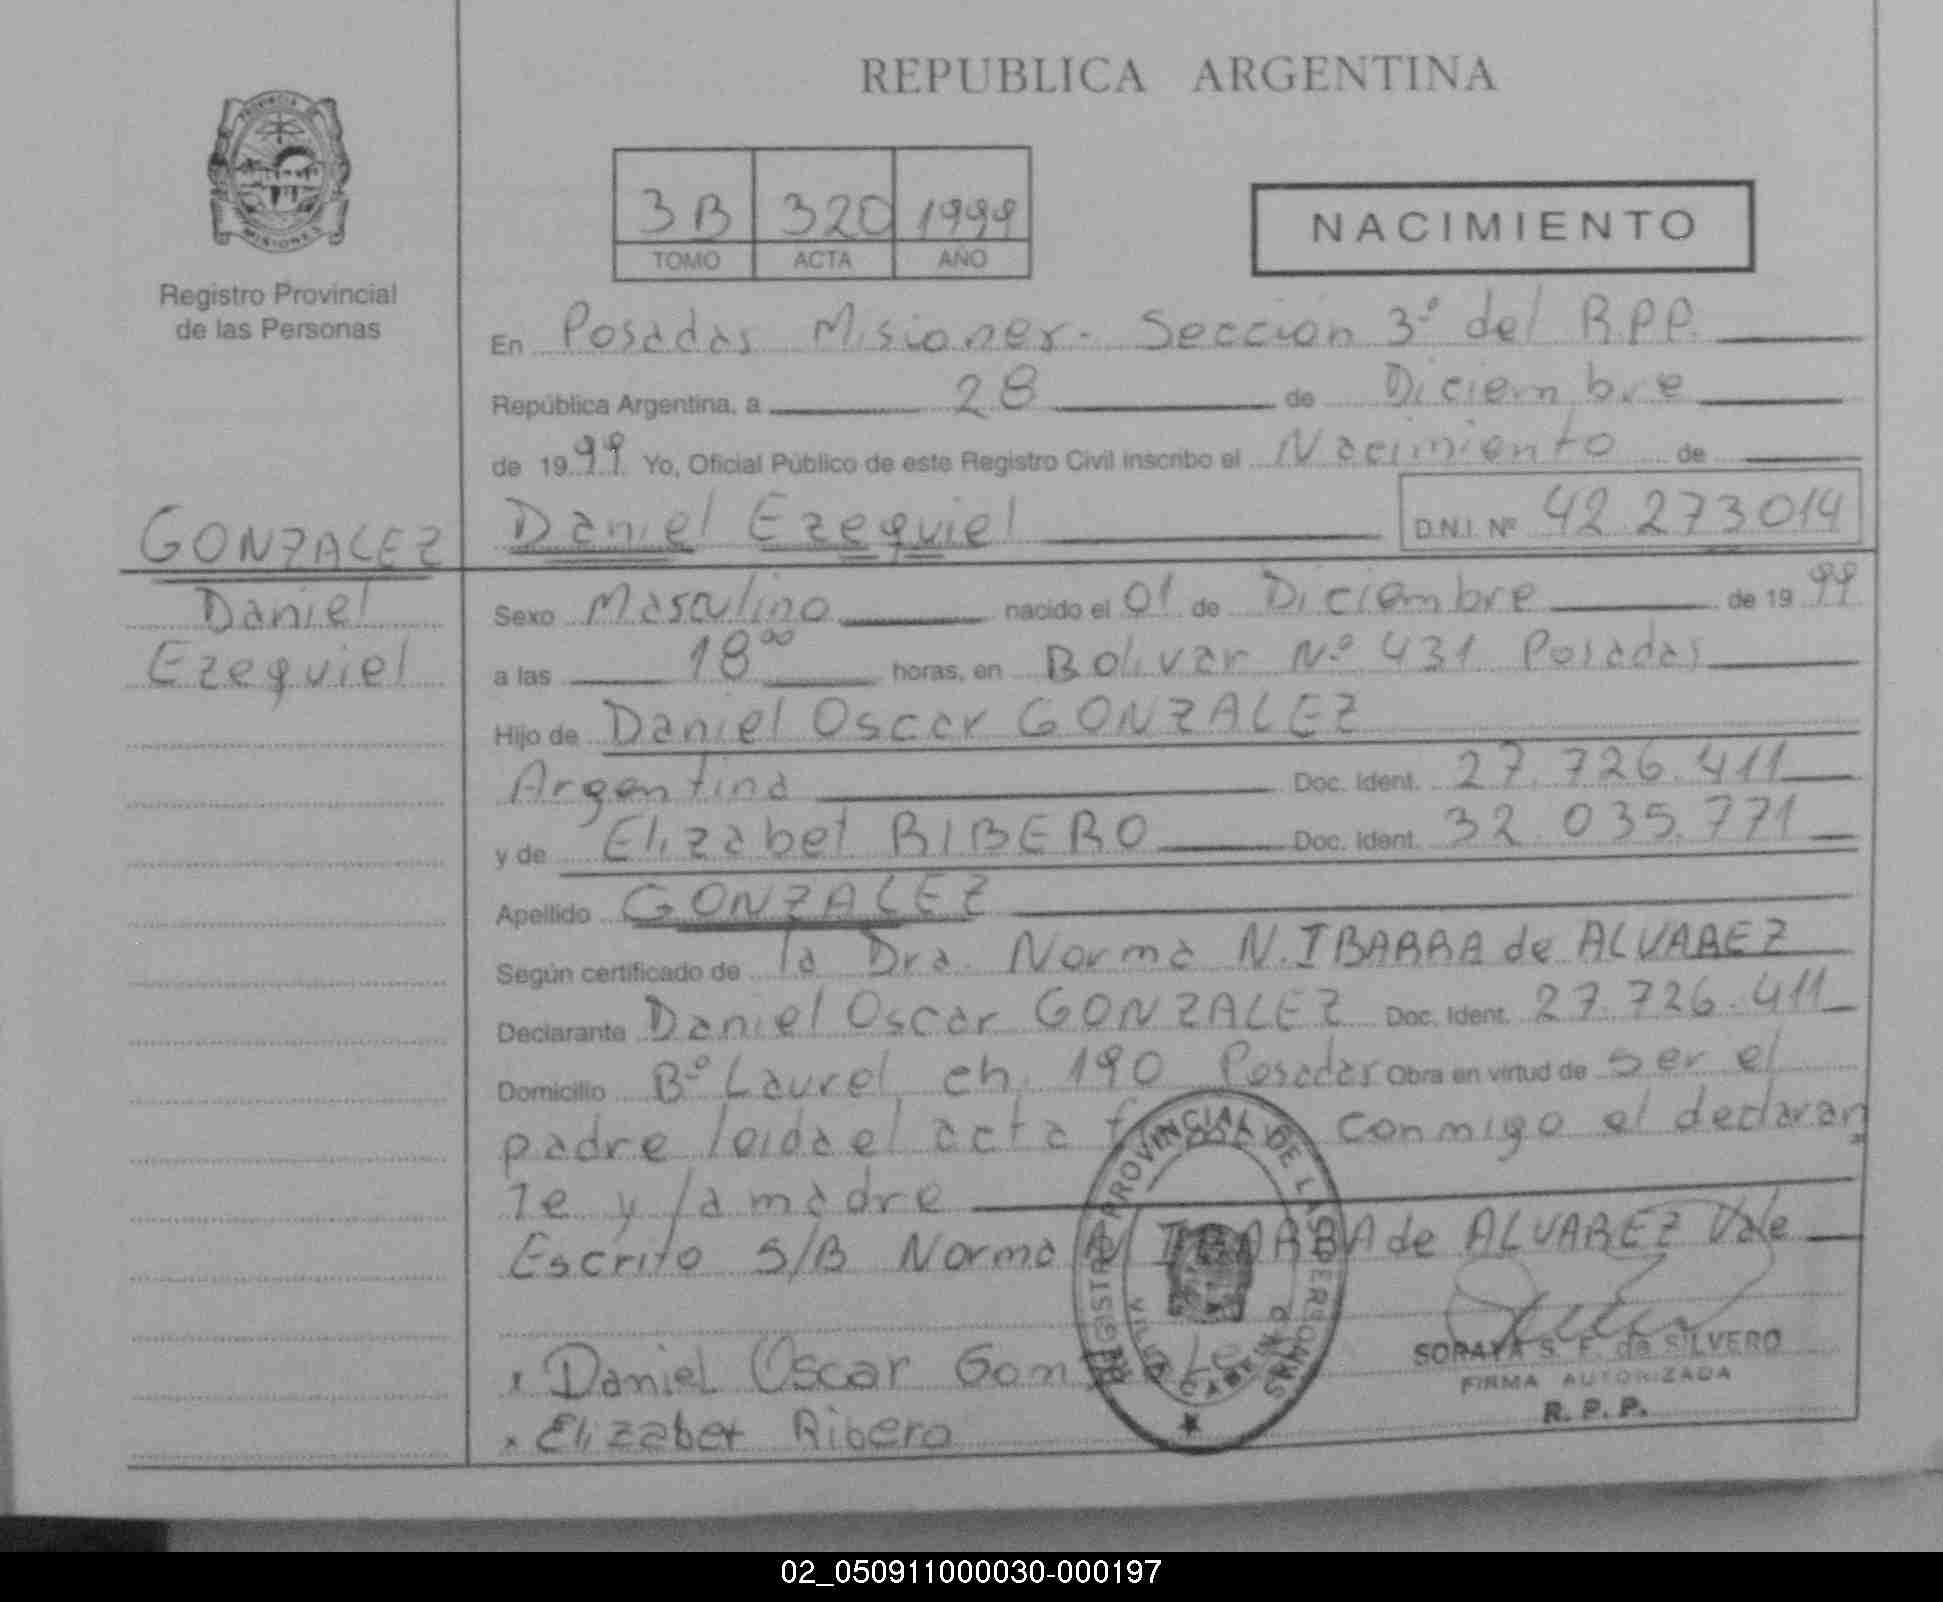 REPUBLICA ARGENTINA
PROVINCIA
MISIONES
Registro Provincial
de las Personas
3B 320 1999
TOMO ACTA AÑO
NACIMIENTO
En Posadas Misiones - Sección 3º del R.P.P.
República Argentina, a 28 de Diciembre
de 1999 Yo, Oficial Público de este Registro Civil inscribo el Nacimiento de
GONZALEZ Daniel Ezequiel D.N.I. Nº 42.273014
Daniel
Ezequiel
Sexo Masculino nacido el 01 de Diciembre de 1999
a las 18⁰⁰ horas, en Bolivar Nº 431 Posadas
Hijo de Daniel Oscar GONZALEZ
Argentina Doc. Ident. 27.726.411
y de Elizabet RIBERO Doc. Ident. 32.035.771
Apellido GONZALEZ
Según certificado de la Dra. Norma N. IBARRA de ALVAREZ
Declarante Daniel Oscar GONZALEZ Doc. Ident. 27.726.411
Domicilio Bº Laurel ch. 190 Posadas Obra en virtud de ser el
padre leida el acta conmigo el declaran
te y la madre
Escrito S/B Norma N IBARRA de ALVAREZ Vale
Daniel Oscar
Elizabet Ribero
REGISTRO PROVINCIAL DE LAS PERSONAS
VILLA CABELLO
SORAYA S. F. de SILVERO
FIRMA AUTORIZADA
R. P. P.
02_050911000030-000197